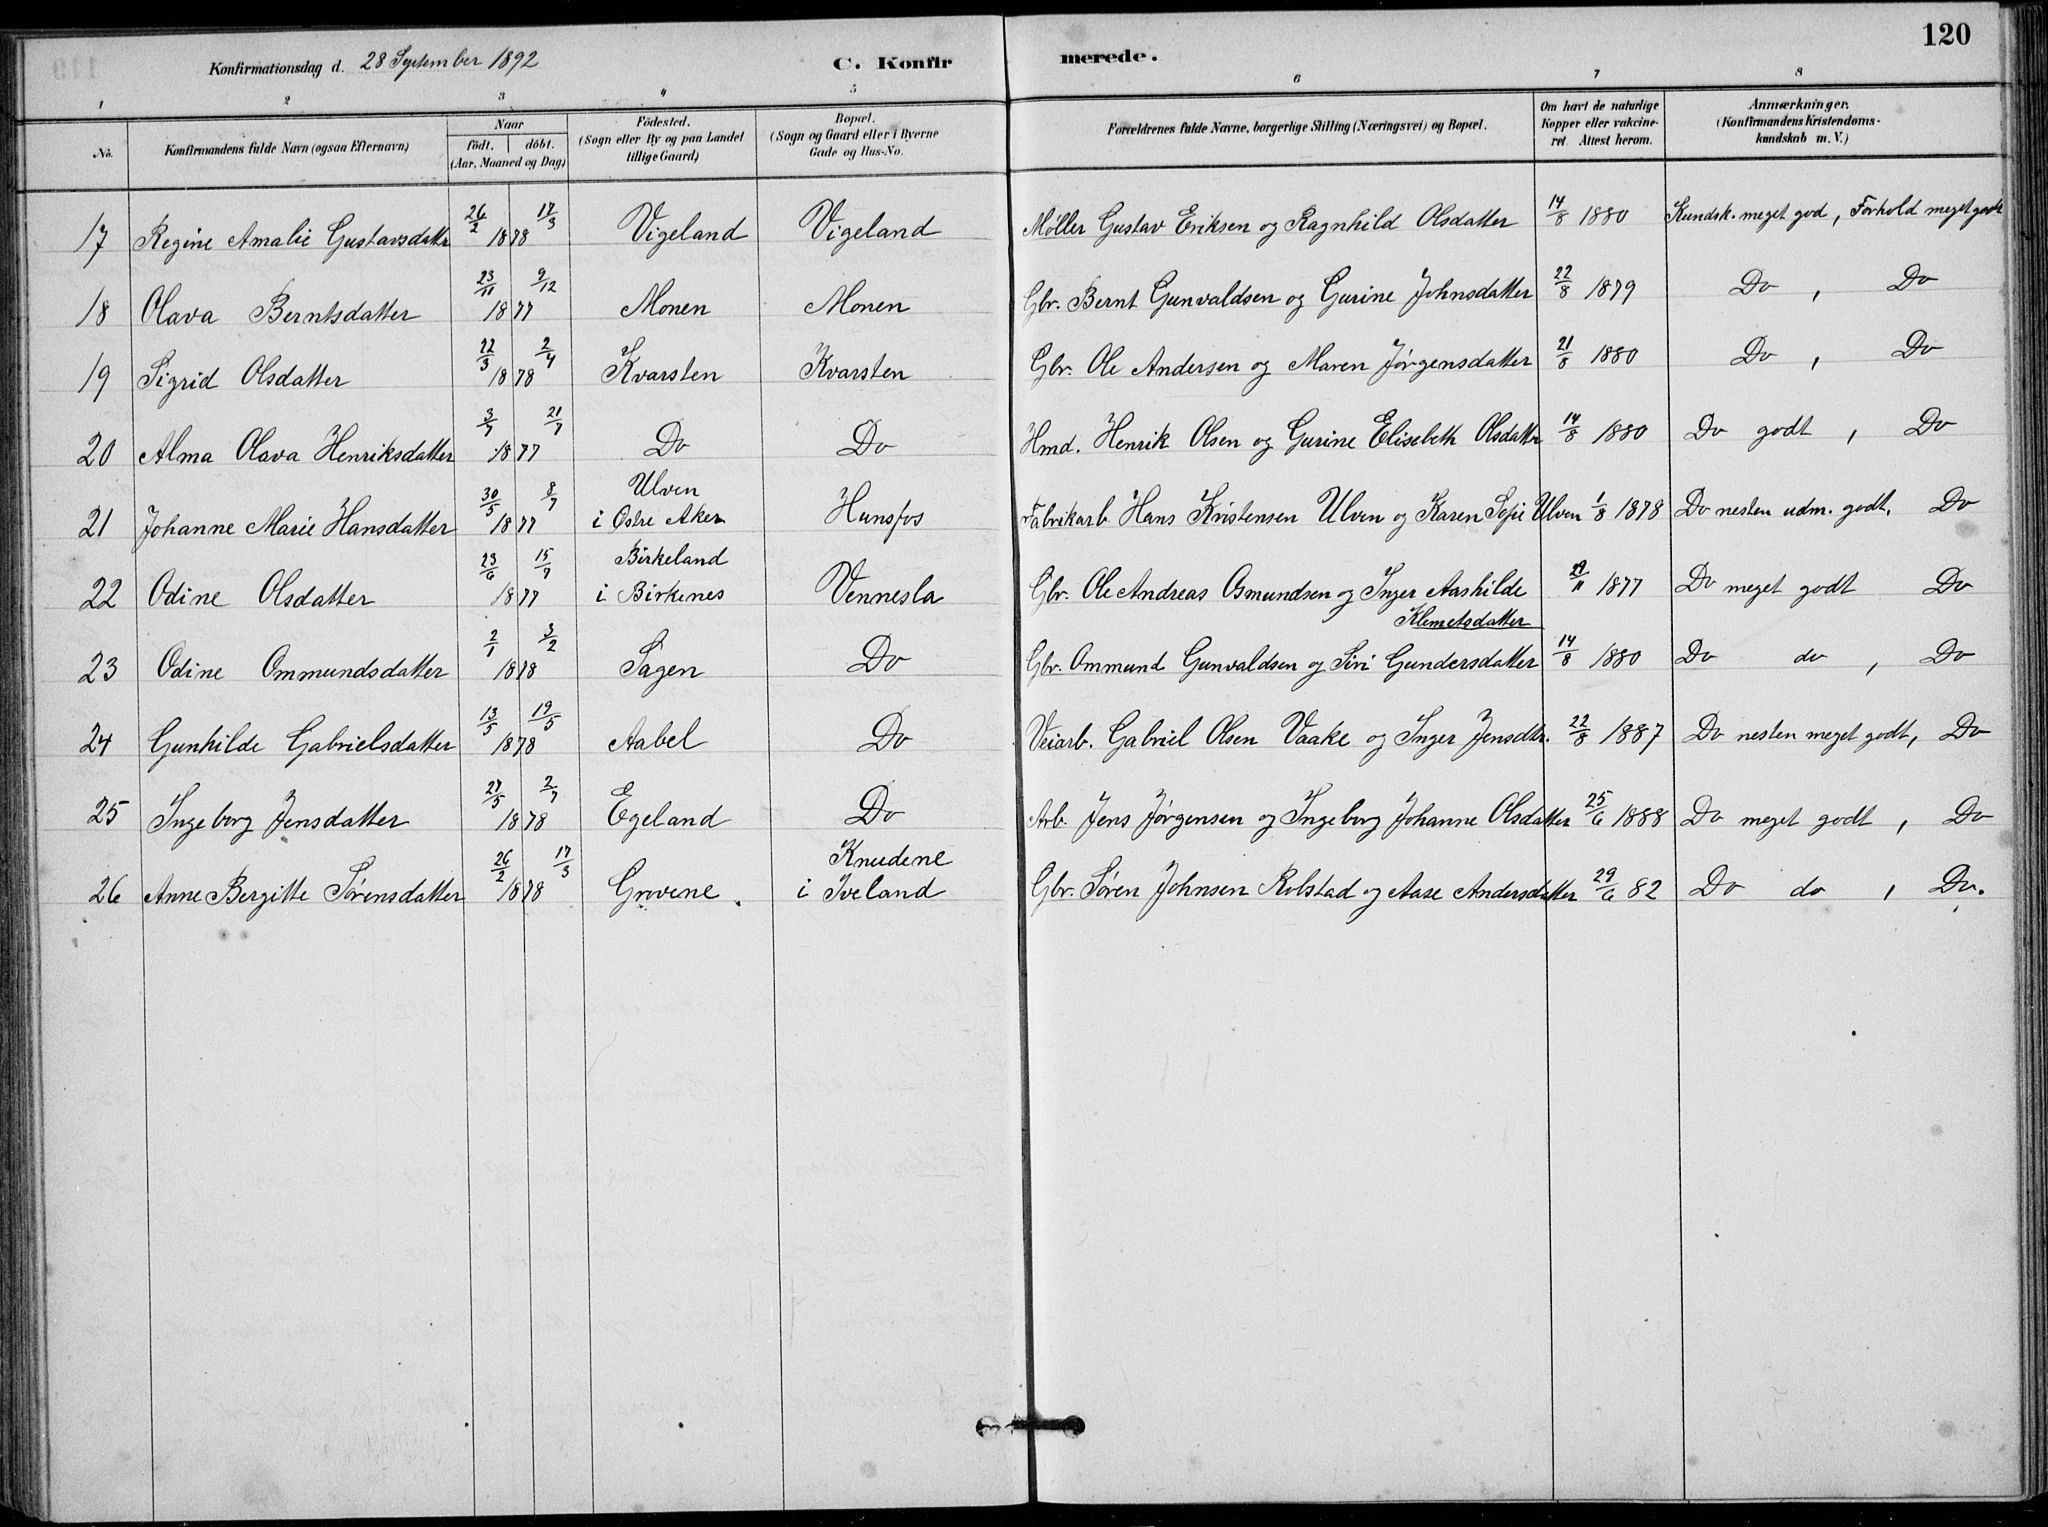 120
Konfirmationsdag d. 28 September 1892 C. Konfirmerede.
1 2 3 4 5 6 7 8
No. Konfirmandens fulde Navn (ogsaa Efternavn) Naar födt. döbt. (Aar, Maaned og Dag) Födested. (Sogn eller By og paa Landet tillige Gaard) Bopæl. (Sogn og Gaard eller i Byerne Gade og Hus-No. Forældrenes fulde Navne, borgerlige Stilling (Næringsvei) og Bopæl. Om havt de naturlige Kopper eller vakcineret. Attest herom. Anmærkninger. (Konfirmandens Kristendomskundskab m. V.)
17 Regine Amalie Gustavsdatter 26/2 17/3 1878 Vigeland Vigeland Møller Gustav Eriksen og Ragnhild Olsdatter 14/8 1880 Kundsk. meget god, Forhold meget godt
18 Olava Berntsdatter 23/11 9/12 1877 Monen Monen Gbr. Bernt Gunvaldsen og Gurine Johnsdatter 22/8 1879 Do, Do
19 Sigrid Olsdatter 22/3 2/4 1878 Kvarsten Kvarsten Gbr. Ole Andersen og Maren Jørgensdatter 21/8 1880 Do, Do
20 Alma Olava Henriksdatter 3/7 21/7 1877 Do Do Hmd. Henrik Olsen og Gurine Elisebeth Olsdatter 14/8 1880 Do godt, Do
21 Johanne Marie Hansdatter 30/5 8/7 1877 Ulven i Østre Aker Hunsfos Fabrikarb. Hans Kristensen Ulven og Karen Sofie Ulven 1/8 1878 Do nesten udm. godt, Do
22 Odine Olsdatter 23/6 15/7 1877 Birkeland i Birkenes Vennesla Gbr. Ole Andreas Osmundsen og Inger Aashilde Klemetsdatter /11 1877 Do meget godt Do
23 Odine Ommundsdatter 2/1 3/2 1878 Sagen Do Gbr. Ommund Gunvaldsen og Siri Gundersdatter 14/8 1880 Do do, Do
24 Gunhilde Gabrielsdatter 13/5 19/5 1878 Aabel Do Veiarb. Gabriel Olsen Vaake og Inger Jensdtr. 22/8 1887 Do nesten meget godt, Do
25 Ingeborg Jensdatter 27/5 2/7 1878 Egeland Do Arb. Jens Jørgensen og Ingeborg Johanne Olsdatter 25/6 1888 Do meget godt, Do
26 Anne Bergitte Sørensdatter 26/2 17/3 1878 Grovene. Knudene i Iveland Gbr. Søren Johnsen Rolstad og Aase Andersdatter 29/6 82 Do do, Do.